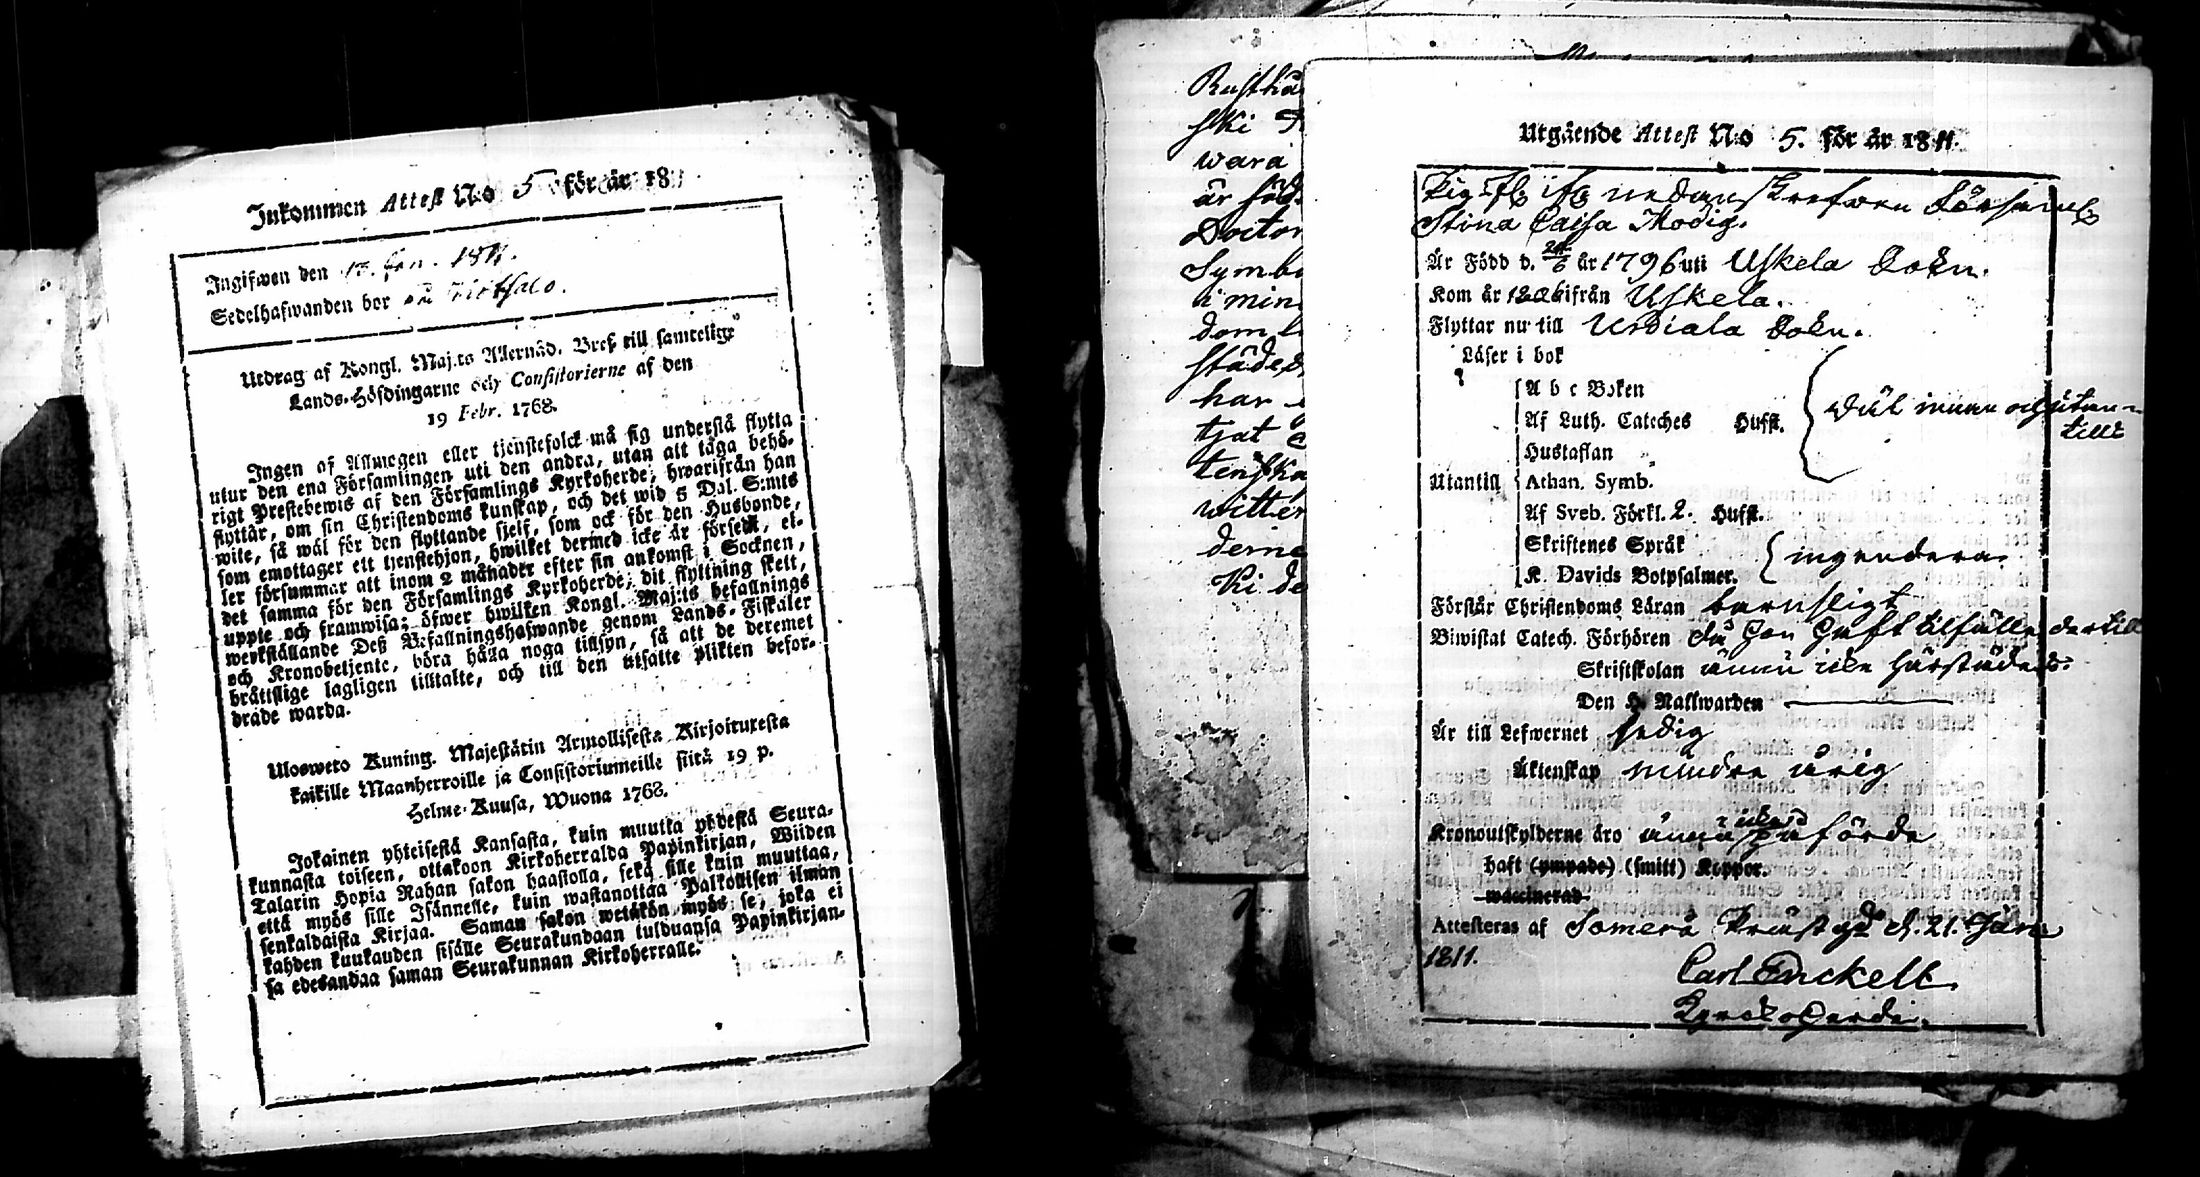 Inkommen Attest No 5 för år 1811
Ingifwen den 18
Sedelhafwanden bor
Utdrag af Kongl. Maj:ts Allernåd. Bref till samtelige
Lands-Höfdingarne och Consistorierne af den
19 Febr. 1768.
Ingen af Allmogen eller tjenstefolck må sig understå flytta
utur den ena Församlingen uti den andra, utan att taga behö-
rigt Prestebewis af den Församlings Kyrkoherde, hwarifrån han
flyttar, om sin Christendoms kunskap, och det wid 5 Dal. S:mts
wite, så wäl för den flyttande sjelf, som ock för den Husbonde,
som emottager ett tjenstehjon, hwilket dermed icke är försedt, el-
ler försummar att inom 2 månader efter sin ankomst i Socknen,
det samma för den Församlings Kyrkoherde, dit flyttning skett,
uppte och framwisa; öfwer hwilken Kongl. Maj:ts befallnings
werkställande Deß Befallningshafwande genom Lands-Fiskaler
och Kronobetjente, böra hålla noga tillsyn, så att de deremet
bråttslige lagligen tilltalte, och till den utsatte plikten befor-
drade warda.
Ulosweto Kuning. Majestätin Armollisesta Kirjoituxesta
kaikille Maanherroille ja Consistoriumeille siitä 19 p.
Helme-Kuusa, Wuona 1768.
Jokainen yhteisestä Kansasta, kuin muutta yhdestä Seura-
kunnasta toiseen, ottakoon Kirkoherralda Papinkirjan, Wiiden
Talarin Hopia Rahan sakon haastolla, sekä sille kuin muuttaa,
että myös sille Isännelle, kuin wastanottaa Palkollisen ilman
senkaldaista Kirjaa. Saman sakon wetäkön myös se, joka ei
kahden kuukauden sisälle Seurakundaan tulduansa Papinkirjan-
sa edesandaa saman Seurakunnan Kirkoherralle.
Rusthå
ski
wara
är föd
Doctor
Symbo
i min
dom
städed
har
tjat
tenska
witter
derne
Ki de
Utgående Attest No 5. för år 1811.
nedanskrefwen Församl
Stina Caisa Modig.
Är Född d. år 1796 uti Uskela Sokn.
Kom år 1806 ifrån Uskela.
Flyttar nu till Urdiala Sokn.
Läser i bok
A b c Boken
Af Luth. Cateches Hufst. wäl innan och utan-
till
Hustaflan
Utantill Athan. Symb.
Af Sveb. Förkl. 2. Hufst.
Skriftenes Språk ingendera
K. Davids Botpsalmer.
Förstår Christendoms Läran barnsligt
Biwistat Catech. Förhören då hon haft tilfälle dertill
Skriftskolan ännu icke härstädes.
Den H. Nattwarden
Är till Lefwernet sedig
Äktenskap mindre årig
Kronoutskylderne äro ännu icke påförde
haft (ympade) (smitt) Koppor.
waccinerad
Attesteras af Somero Präst gd d. 21. Jan
1811.
Carl Enckell
Kyrckoherde.